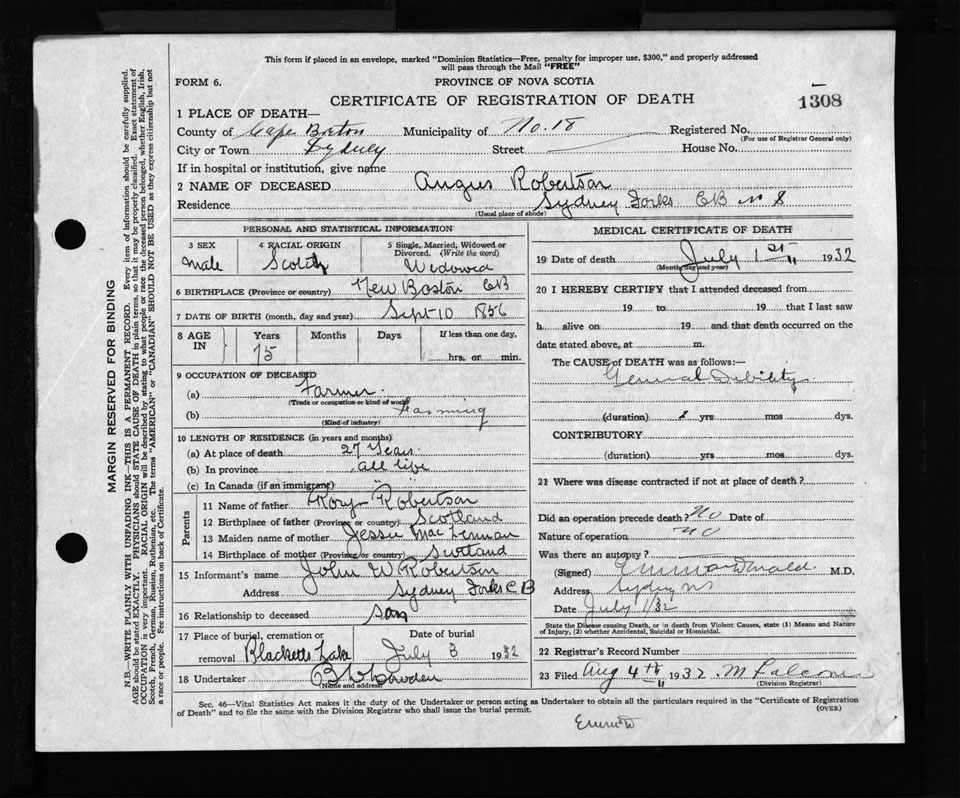 This form if placed in an envelope, marked "Dominion Statistics—Free, penalty for improper use, $300," and properly addressed
will pass through the Mail "FREE"
FORM 6.
PROVINCE OF NOVA SCOTIA
CERTIFICATE OF REGISTRATION OF DEATH
1308
1 PLACE OF DEATH—
County of Cape Breton Municipality of No. 18 Registered No.
(For use of Registrar General only)
City or Town Sydney Street House No.
If in hospital or institution, give name
2 NAME OF DECEASED Angus Robertson
Residence Sydney Forks CB
(Usual place of abode)
PERSONAL AND STATISTICAL INFORMATION
3 SEX 4 RACIAL ORIGIN 5 Single, Married, Widowed or Divorced. (Write the word)
Male Scotch Widowed
6 BIRTHPLACE (Province or country) New Boston CB
7 DATE OF BIRTH (month, day and year) Sept 10 1856
8 AGE IN Years Months Days If less than one day,
75 hrs. or min.
9 OCCUPATION OF DECEASED
(a) Farmer
(Trade or occupation or kind of work)
(b) Farming
(Kind of industry)
10 LENGTH OF RESIDENCE (in years and months)
(a) At place of death 27 Years
(b) In province all life
(c) In Canada (if an immigrant) " "
Parents
11 Name of father Rory Robertson
12 Birthplace of father (Province or country) Scotland
13 Maiden name of mother Jessie MacLennan
14 Birthplace of mother (Province or country) Scotland
15 Informant's name John W Robertson
Address Sydney Forks C B
16 Relationship to deceased son
17 Place of burial, cremation or removal Blacketts Lake Date of burial July 3 1932
18 Undertaker
(Name and address)
MEDICAL CERTIFICATE OF DEATH
19 Date of death July 1st 1932
(Month, day and year)
20 I HEREBY CERTIFY that I attended deceased from
19 to 19 that I last saw
h alive on 19 and that death occurred on the
date stated above, at m.
The CAUSE of DEATH was as follows:—
General Debility
(duration) yrs mos dys.
CONTRIBUTORY
(duration) yrs mos dys.
21 Where was disease contracted if not at place of death?
Did an operation precede death? No Date of
Nature of operation No
Was there an autopsy?
(Signed) M.D.
Address Sydney NS
Date July 1/32
State the Disease causing Death, or in death from Violent Causes, state (1) Means and Nature
of Injury, (2) whether Accidental, Suicidal or Homicidal.
22 Registrar's Record Number
23 Filed Aug 4th 1932
(Division Registrar)
Sec. 46—Vital Statistics Act makes it the duty of the Undertaker or person acting as Undertaker to obtain all the particulars required in the "Certificate of Registration
of Death" and to file the same with the Division Registrar who shall issue the burial permit. (OVER)
MARGIN RESERVED FOR BINDING
N.B.—WRITE PLAINLY WITH UNFADING INK—THIS IS A PERMANENT RECORD. Every item of information should be carefully supplied.
AGE should be stated EXACTLY. PHYSICIANS should STATE CAUSE OF DEATH in plain terms, so that it may be properly classified. Exact statement of
OCCUPATION is very important. RACIAL ORIGIN will be described by stating to what people or race the deceased person belonged, whether English, Irish,
Scotch, French, German, Russian, Ruthenian, etc. The terms "AMERICAN" or "CANADIAN" SHOULD NOT BE USED as they express citizenship but not
a race or people. See instructions on back of Certificate.